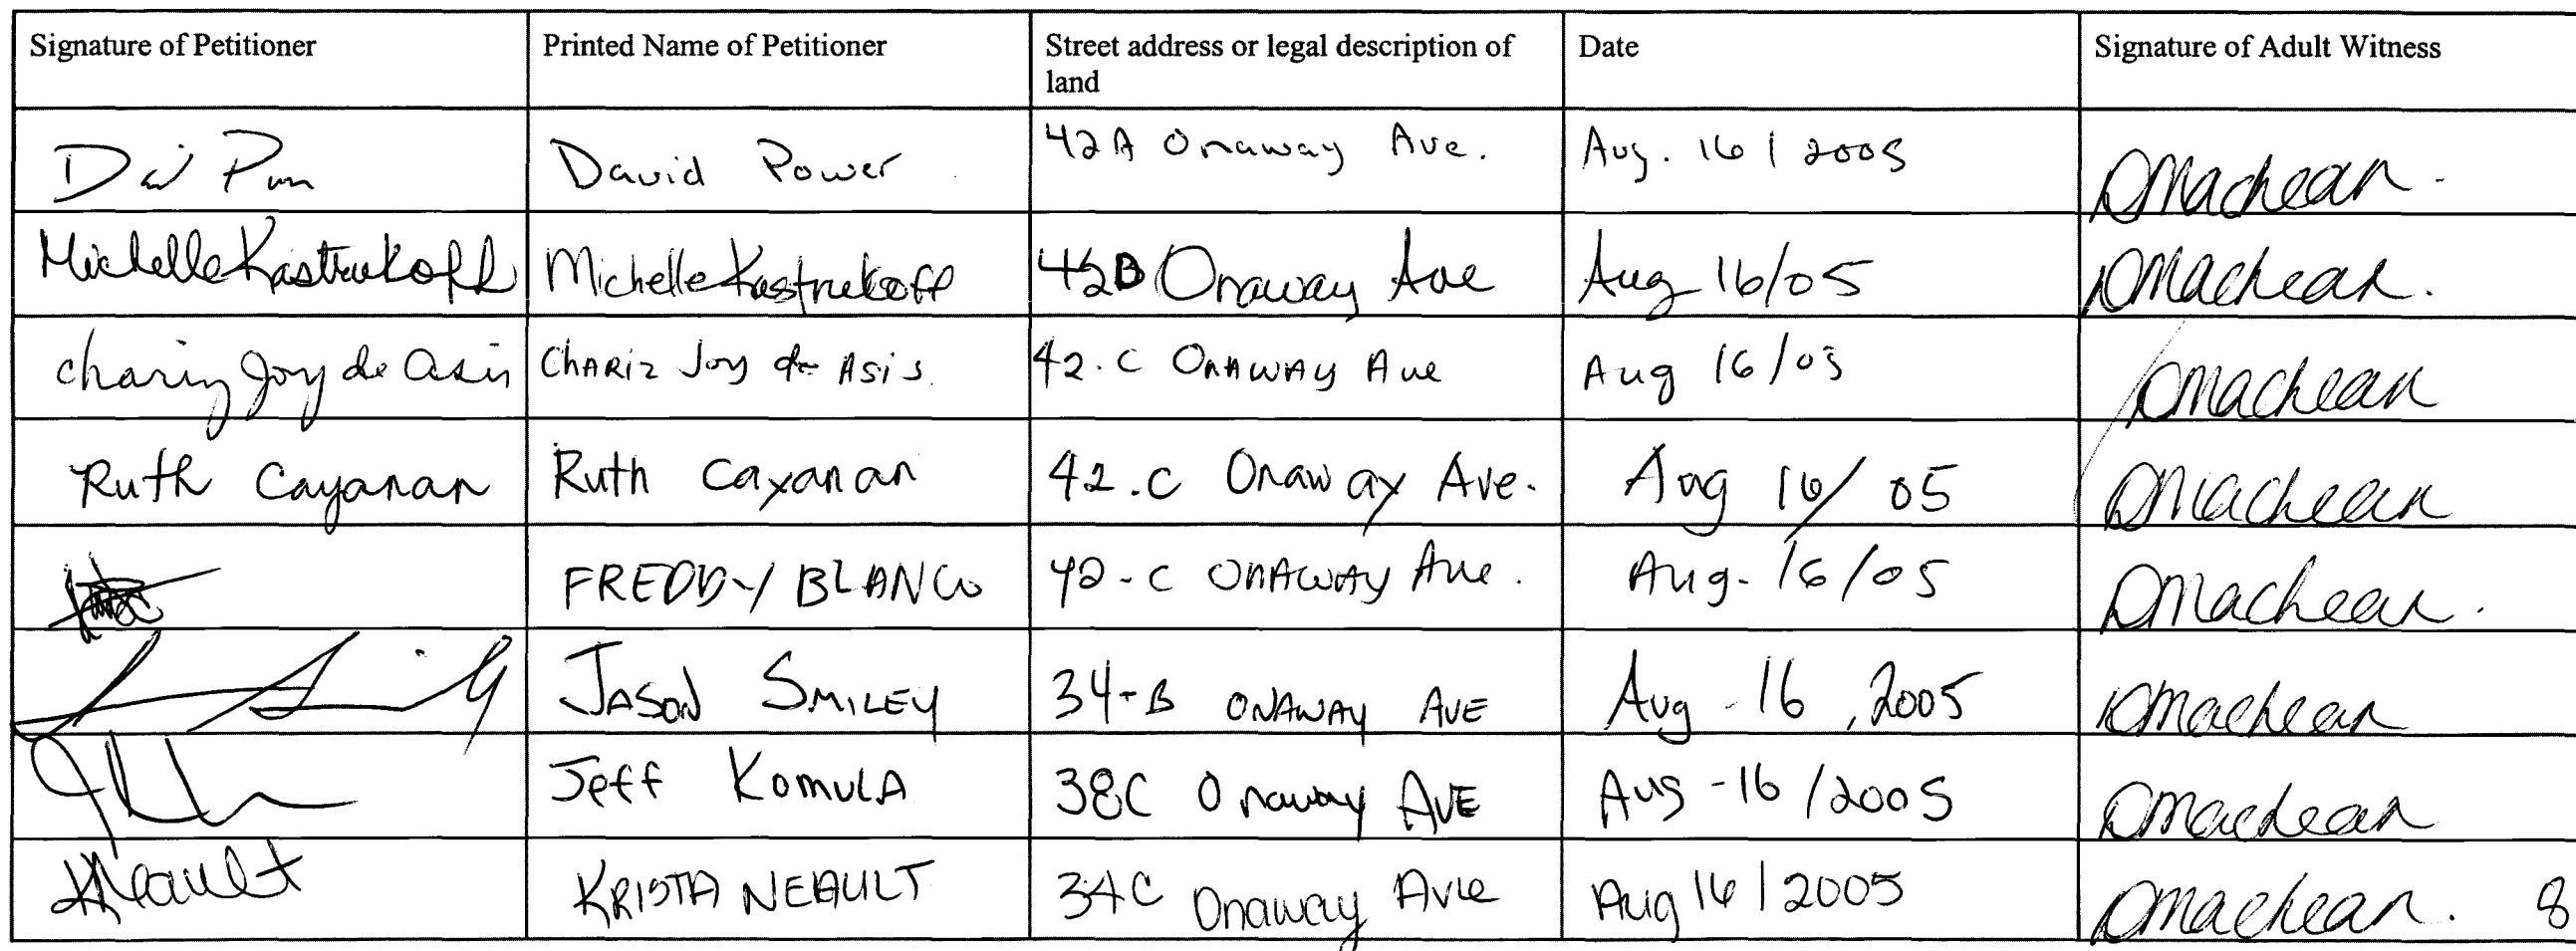 Signature of Petitioner Printed Name of Petitioner Street address or legal description of Date Signature of Adult Witness
land
David Power 42A Onaway Ave. Aug. 16 / 2005 DMacLean.
Michelle Kastrukoff Michelle Kastrukoff 42B Onaway Ave Aug 16/05 DMacLean.
Chariz Joy de Asis CHARiz Joy de Asis. 42.C ONAWAY Ave Aug 16/05 DMacLean
Ruth Cayanan Ruth Cayanan 42.C Onaway Ave. Aug 16/05 DMacLean
FREDDY BLANCO 42-C ONAWAY Ave. Aug. 16/05 DMacLean.
JASON SMILEY 34-B ONAWAY AVE Aug - 16, 2005 DMacLean
Jeff KOMULA 38C Onaway AVE Aug - 16 / 2005 DMacLean
KNeault KRISTA NEAULT 34C Onaway Ave Aug 16 / 2005 DMacLean. 8